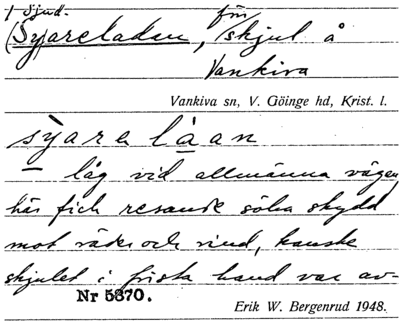 1 Sjud. för
(Syareladan, skjul å
Vankiva
Vankiva sn, V. Göinge hd, Krist. l.
syara låan
– låg vid allmänna vägen,
här fick resande söka skydd
mot väder och vind, kanske
skjulet i första hand var av-
Nr 5370.
Erik W. Bergenrud 1948.